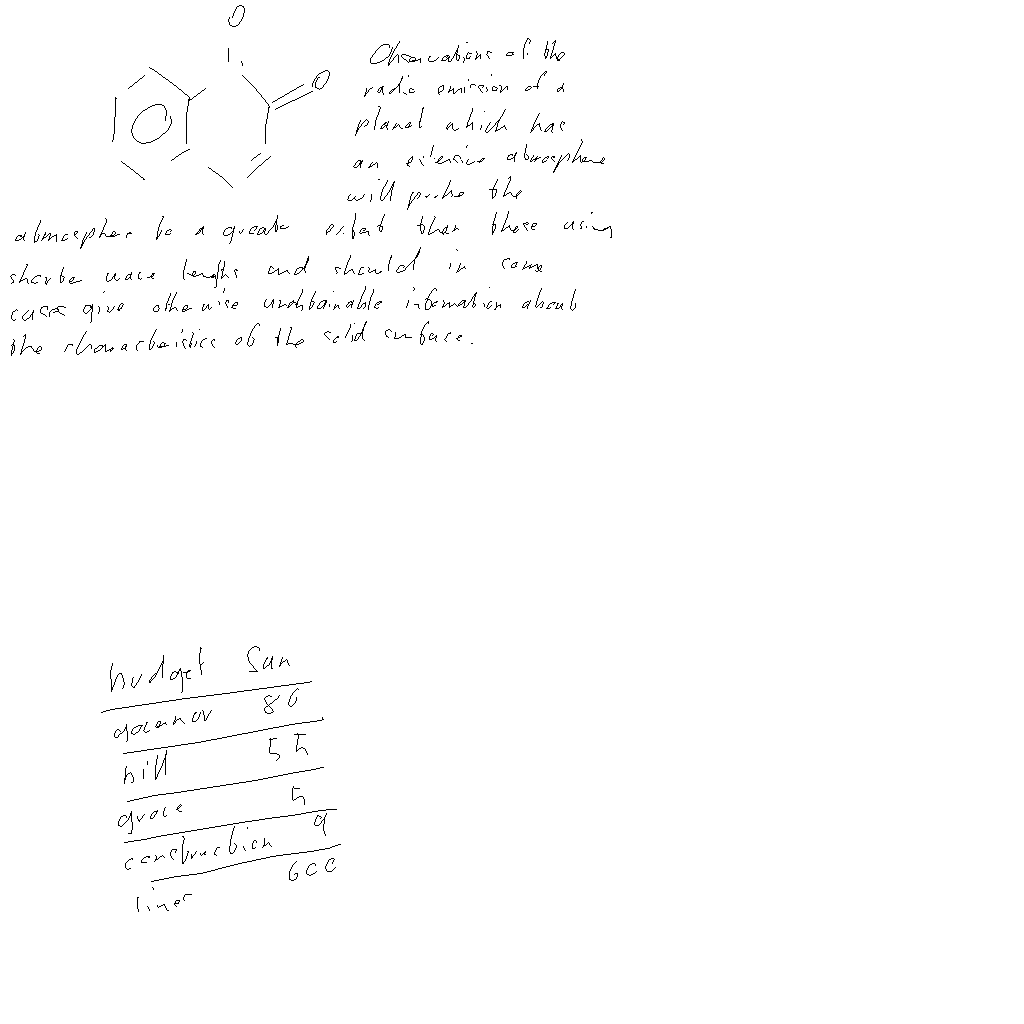 O
O
Observations of the
radio emission of a
planet which has
an extensive atmosphere
will probe the
atmosphere to a greater extent than those using
shorter wave lengths and should in some
cases give otherwise unobtainable information about
the characteristics of the solid surface.
budget Sun
governor 86
hill 55
grace 5
construction 9
liner 600